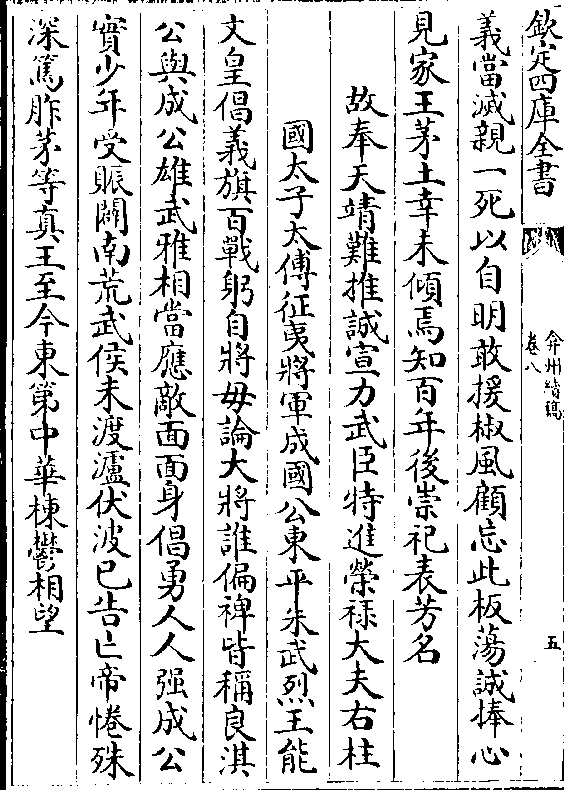 欽定四庫全書
弇州續稿
卷八
五
義當滅親一死以自明敢援椒風顧忘此板蕩誠捧心
見家王茅土幸未傾焉知百年後崇祀表芳名
故奉天靖難推誠宣力武臣特進榮祿大夫右柱
國太子太傅征夷將軍成國公東平朱武烈王能
文皇倡義旗百戰躬自將毋論大將誰偏裨皆稱良淇
公與成公雄武雅相當應敵面面身倡勇人人强成公
實少年受賑闢南荒武侯未渡瀘伏波已告亡帝惓殊
深篤胙茅等真王至今東第中華棟鬱相望